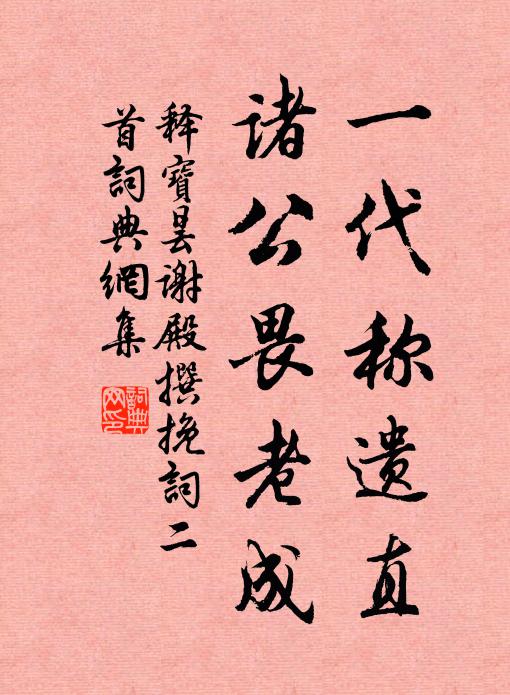 一代称遗直
诸公畏老成
释寶昙谢殿撰挽詞二
首詞典網集
詞典网印